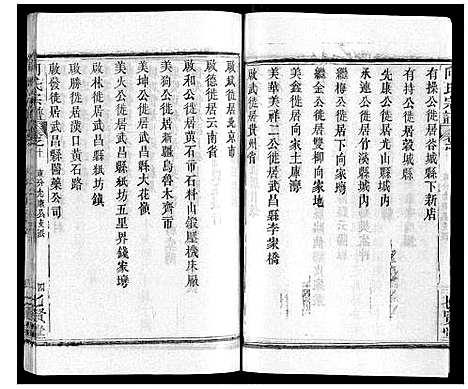 向氏宗譜
有操公徙居谷城縣下新店
有
公徙居竹谿縣城內
先康公徙居光山縣城內
永連公徙居
繼梅公徙居下向家塆
繼金公徙居雙柳向家地
美
公徙居向家土庫灣
啟華美祥二公徙居武昌縣李家橋
啟武徙居貴州省
啟斌徙居北京市
啟德徙居云南省
啟和徙居大冶市石林山鍛壓機床廠
美狗公徙居新疆烏魯木齊市
美坤公徙居武昌縣大花嶺
美火公徙居武昌縣紙坊五里界錢家塆
啟林徙居武昌縣紙坊鎮
啟勝徙居漢口黃石路
啟發徙居武昌縣醫藥公司
向氏宗譜
四
七賢堂
七賢堂